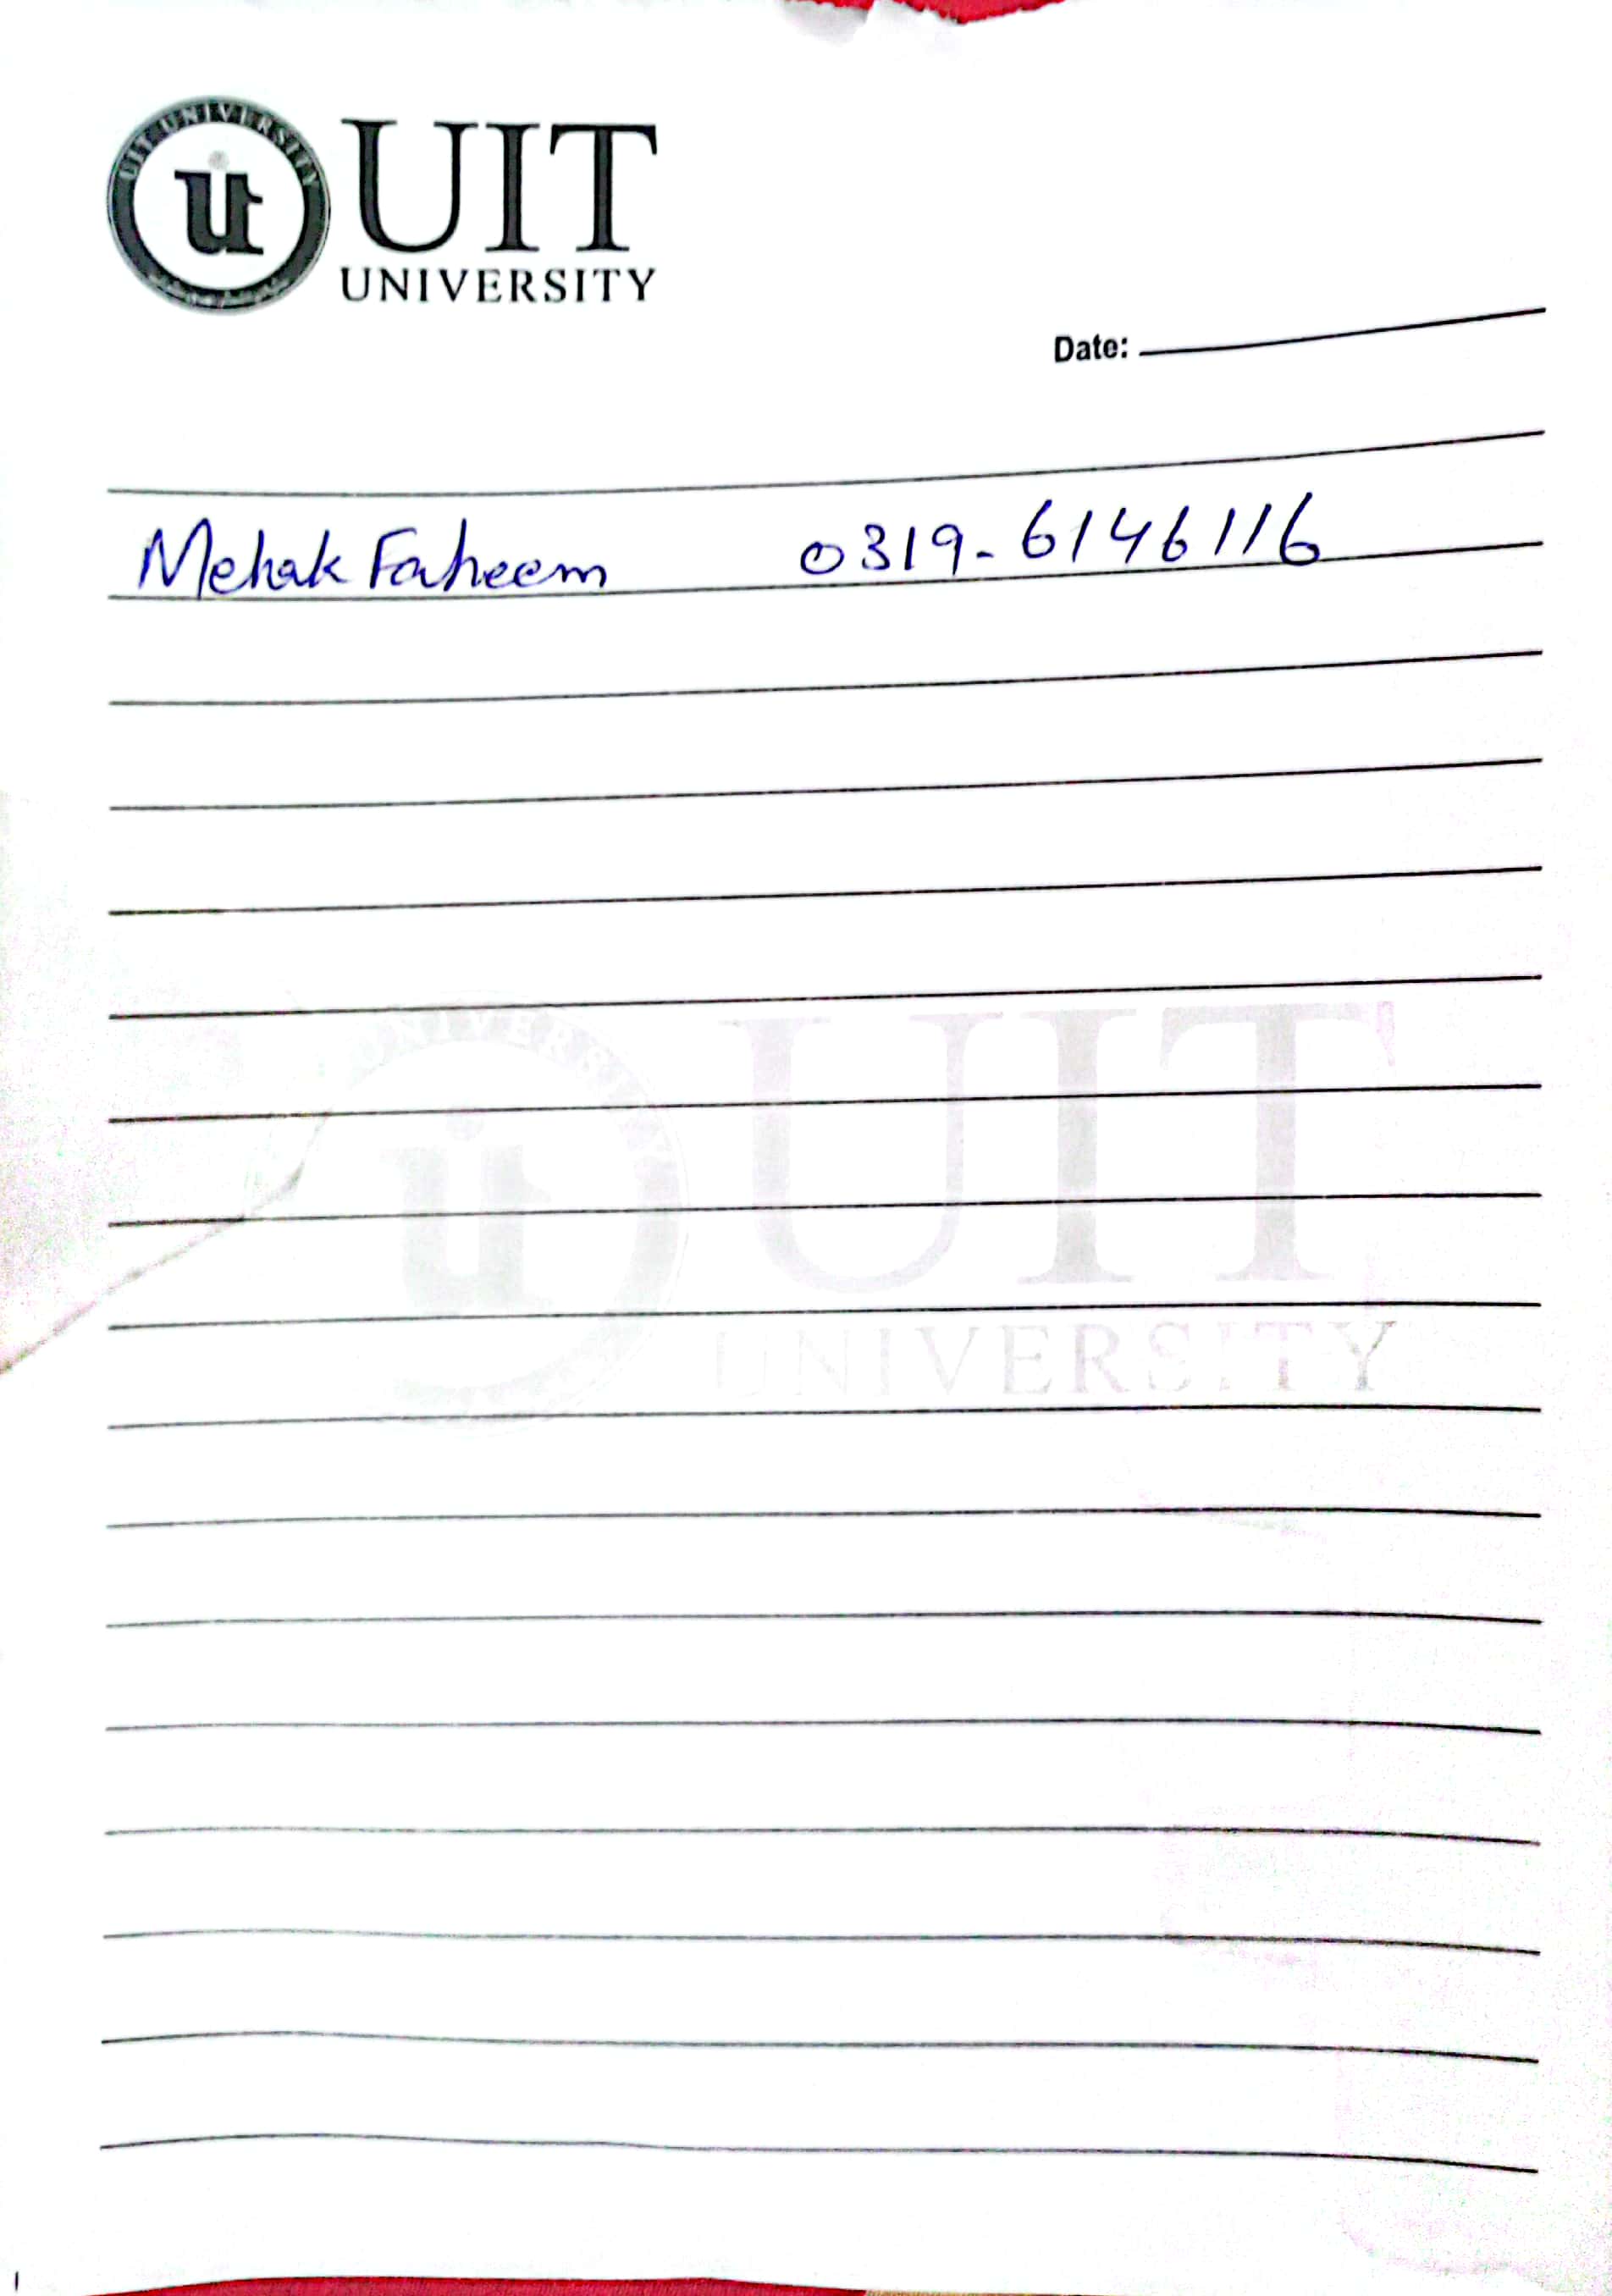 UIT UNIVERSITY
UIT
UNIVERSITY
Date:
Mehak Faheem 0319-6146116
UNIVERSITY
UIT
UNIVERSITY